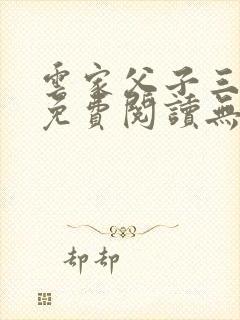 雲家父子三
免費閱讀無
却却